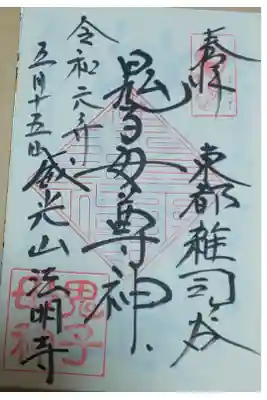 奉拝
東都雑司ケ谷
鬼子母尊神
令和元年
五月十五日
威光山法明寺
鬼子母神